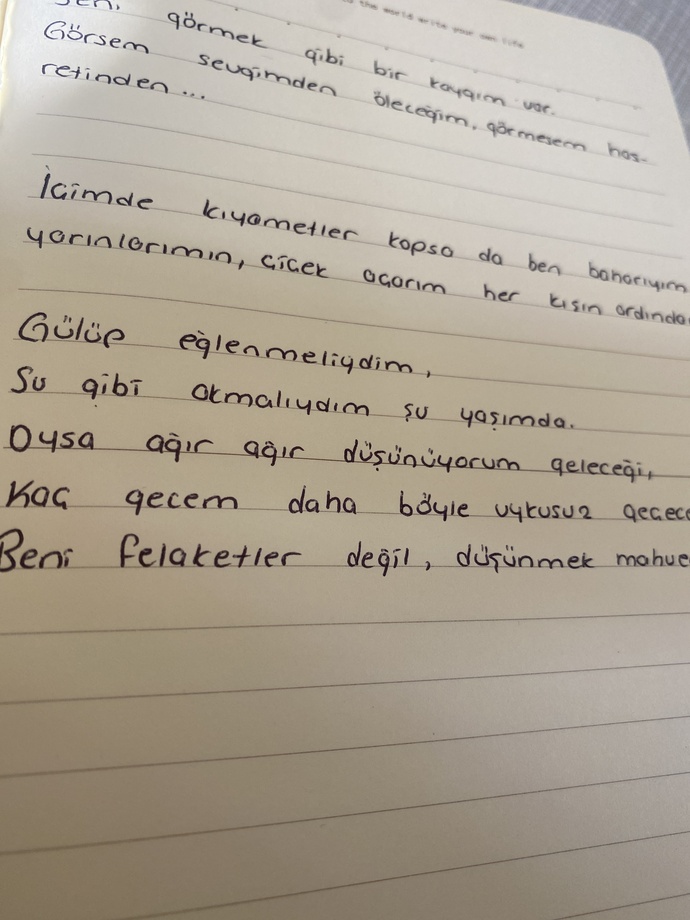 the world write your own life
görmek gibi bir kaygım var.
Görsem sevgimden öleceğim, görmesem has-
retinden...
İçimde kıyametler kopsa da ben baharıyım
yarınlarımın, çiçek açarım her kışın ardında
Gülüp eğlenmeliydim,
Su gibi akmalıydım şu yaşımda.
Oysa ağır ağır düşünüyorum geleceği,
Kaç gecem daha böyle uykusuz gecec
Beni felaketler değil, düşünmek mahve